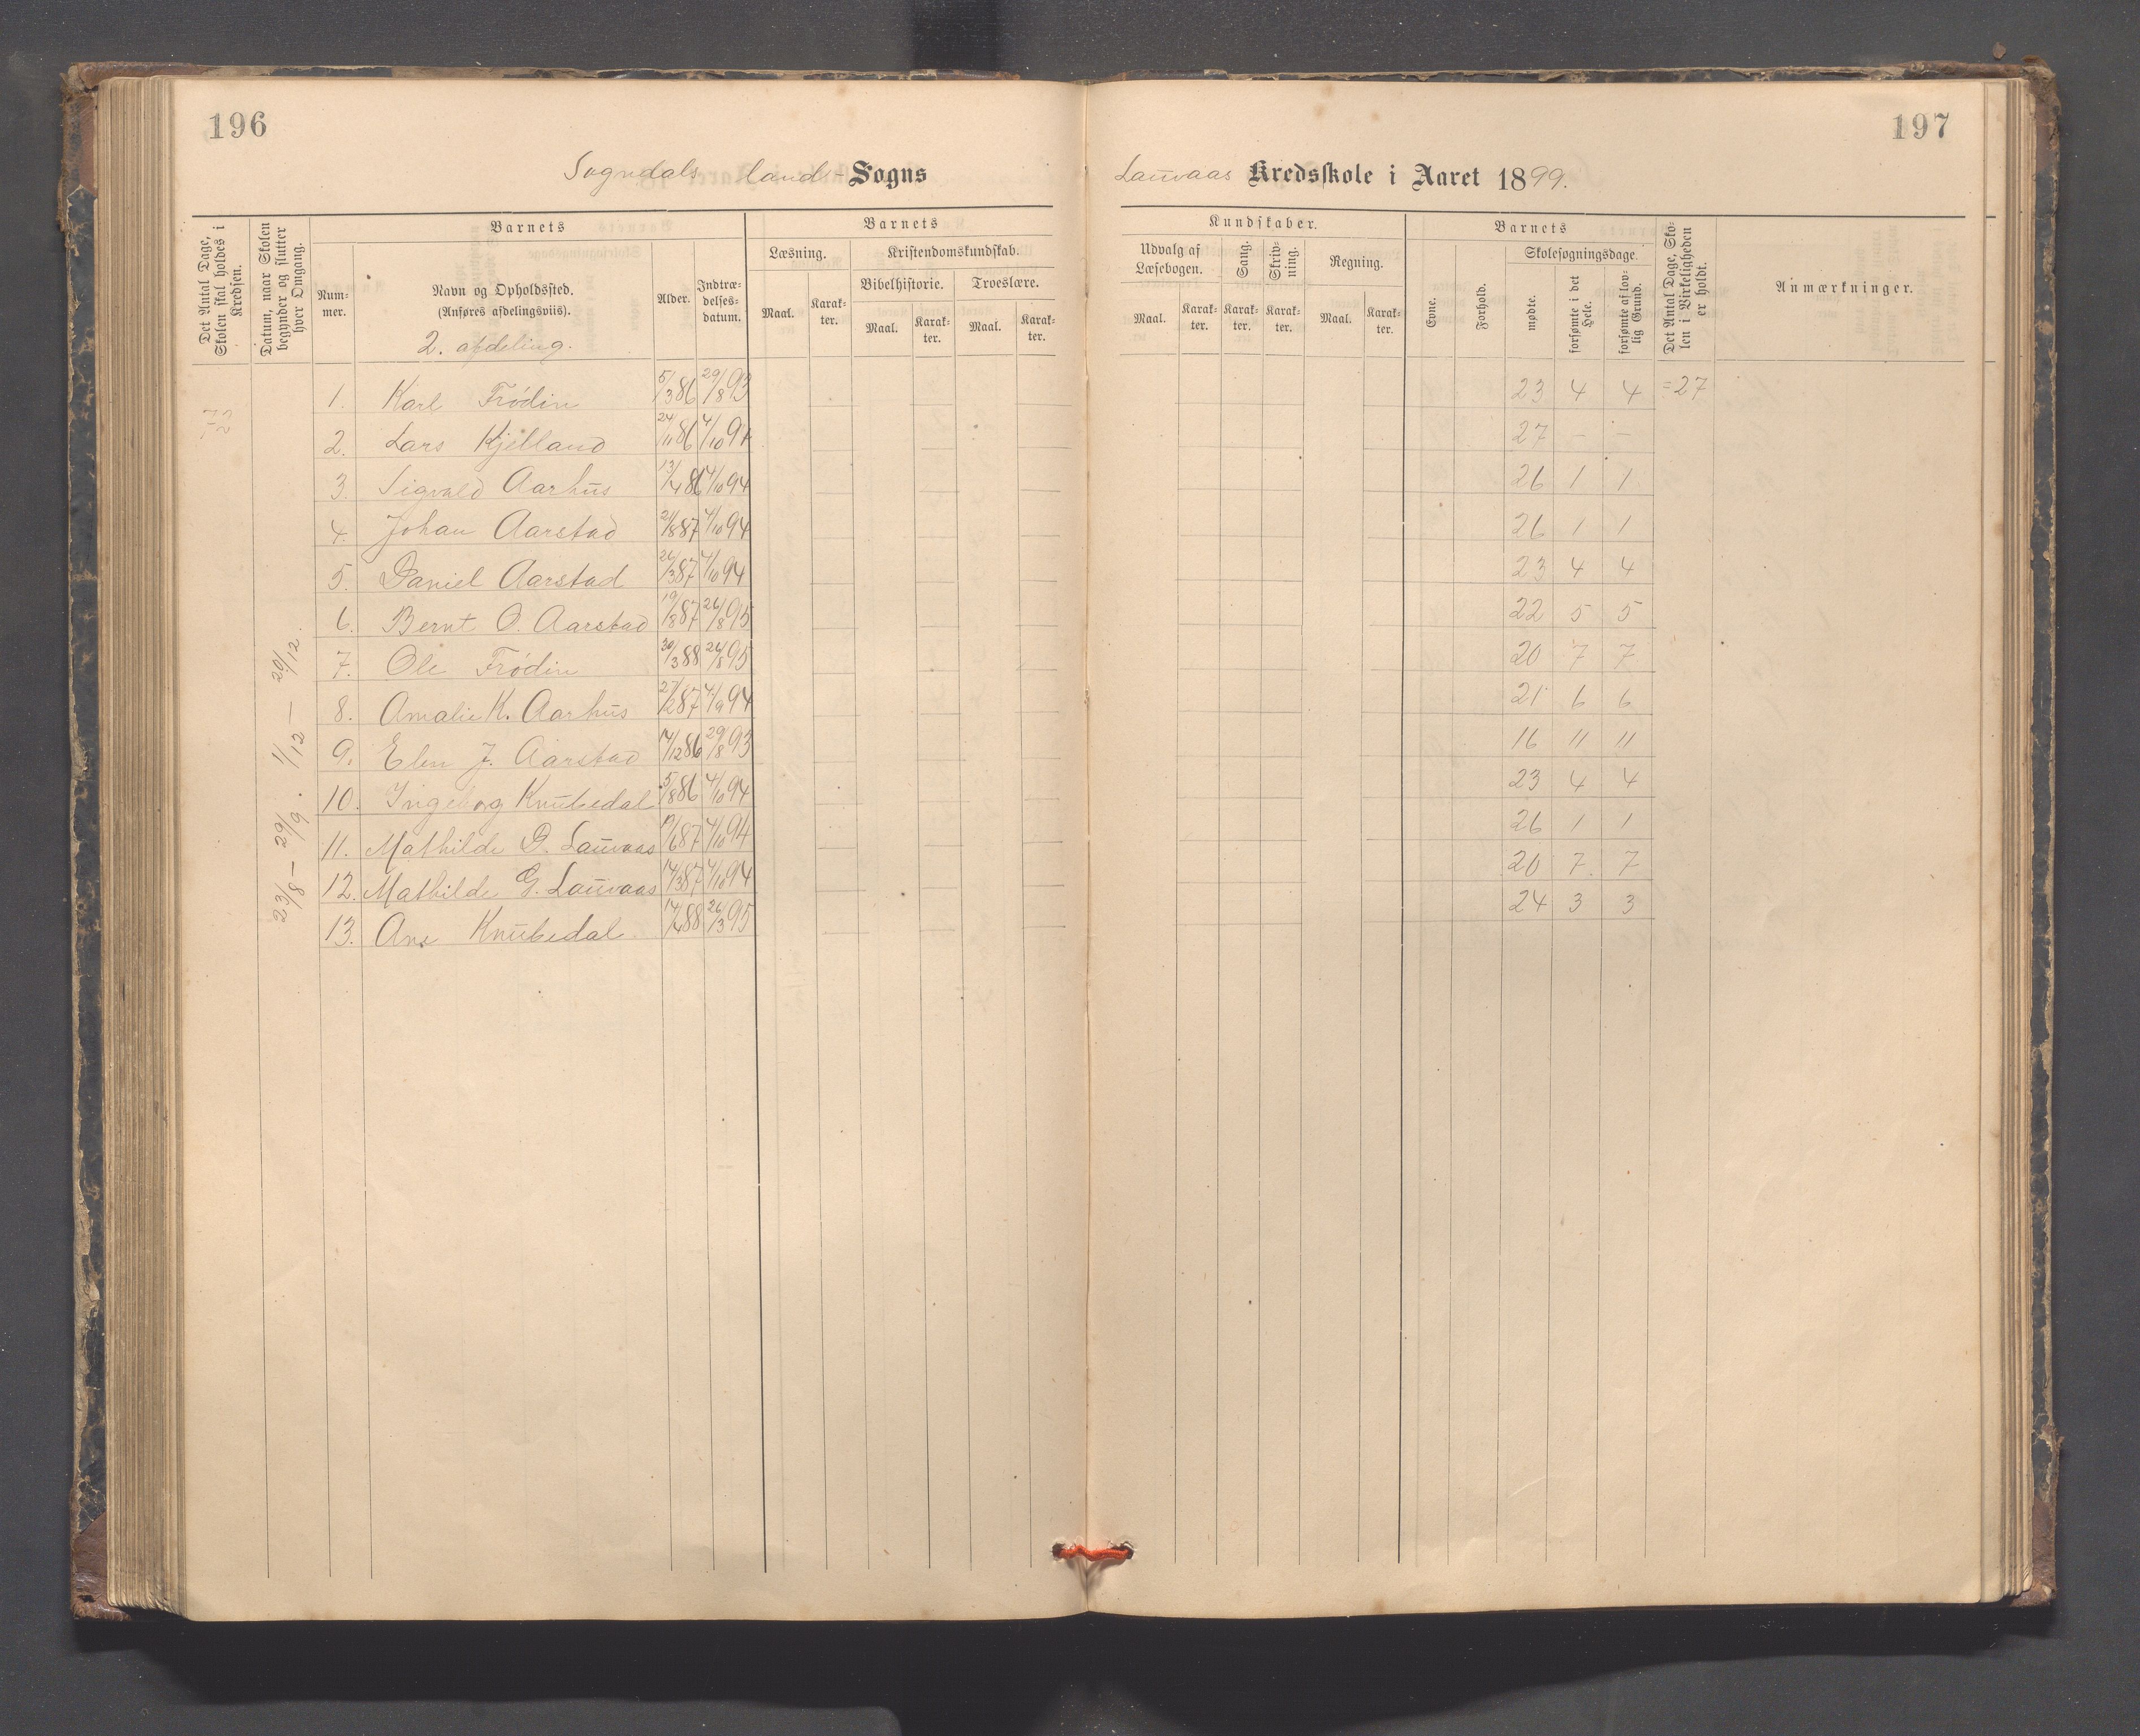 196
Sogndals land-Sogns
Det Antal Dage, Skolen skal holdes i Kredsen.
Datum, naar Skolen begynder og slutter hver Omgang.
Barnets
Num-
mer.
Navn og Opholdssted.
(Anføres afdelingsviis).
2. afdeling.
Alder.
Indtræ-
delses-
datum.
Barnets
Læsning.
Maal.
Karak-
ter.
Kristendomskundskab.
Bibelhistorie.
Troeslære.
Maal.
Karak-
ter.
Maal.
Karak-
ter.
72
23/8 – 29/9. 1/12 – 20/12.
1. Karl Frödin 5/3 86 29/8 93
2. Lars Kjelland 24/11 86 4/10 94
3. Sigvald Aarhus 13/4 86 4/10 94
4. Johan Aarstad 21/8 87 4/10 94
5. Daniel Aarstad 26/3 87 4/10 94
6. Bernt O. Aarstad 19/8 87 26/8 95
7. Ole Frödin 30/3 88 26/8 95
8. Amalie K. Aarhus 27/2 87 4/9 94
9. Elen J. Aarstad 14/12 86 29/8 93
10. Ingeborg Knubedal 5/8 86 4/10 94
11. Mathilde D. Lauvaas 19/6 87 4/10 94
12. Mathilde G. Lauvaas 14/3 87 4/10 94
13. Ane Knubedal 14/4 88 26/3 95
197
Lauvaas Kredsskole i Aaret 1899.
Kundskaber.
Udvalg af
Læsebogen.
Maal.
Karak-
ter.
Sang.
Karak-
ter.
Skriv-
ning.
Karak-
ter.
Regning.
Maal.
Karak-
ter.
Barnets
Evne.
Forhold.
Skolesøgningsdage
mødte.
forsømte i det
Hele.
forsømte af lov-
lig Grund.
Det Antal Dage, Sko-
len i Virkeligheden
er holdt.
Anmærkninger.
23 4 4 =27
27 – –
26 1 1
26 1 1
23 4 4
22 5 5
20 7 7
21 6 6
16 11 11
23 4 4
26 1 1
20 7 7
24 3 3